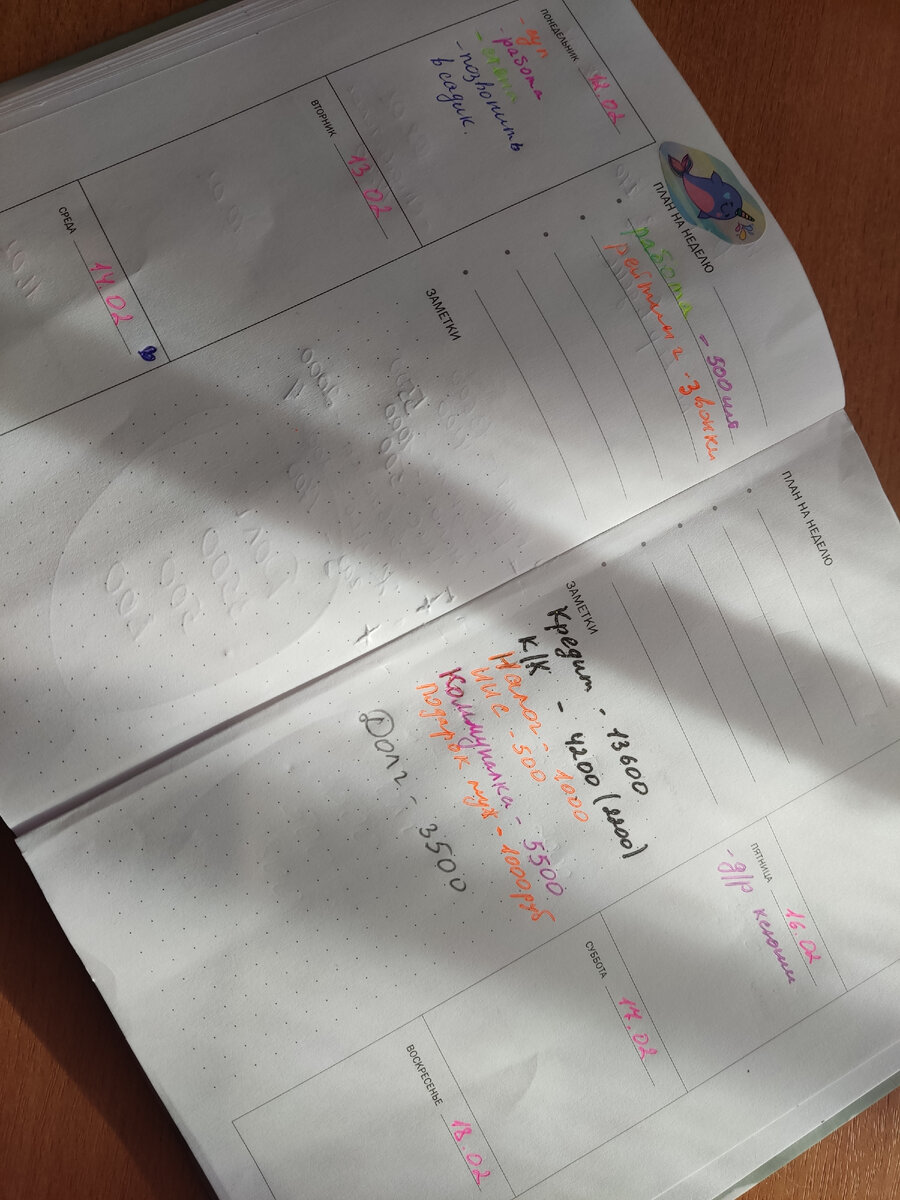 ПОНЕДЕЛЬНИК 12.02
- работа
- позвонить
в садик.
ВТОРНИК 13.02
СРЕДА 14.02
ПЛАН НА НЕДЕЛЮ
работа - 500
- звонки
ЗАМЕТКИ
ПЛАН НА НЕДЕЛЮ
ЗАМЕТКИ
Кредит - 13600
К/К - 4200 (2200)
Налог - 1000
ИИС - 500
Коммуналка - 5500
Подарок муж - 1000 руб
Долг - 3500
ПЯТНИЦА 16.02
- д/р ксюши
СУББОТА 17.02
ВОСКРЕСЕНЬЕ 18.02